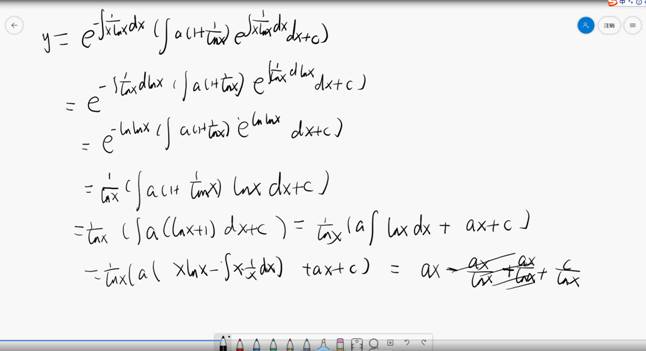 y = e^{-∫\frac{1}{x ln x}dx} (∫ a(1+\frac{1}{ln x}) e^{∫\frac{1}{x ln x}dx} dx + c)
= e^{-∫\frac{1}{ln x} d ln x} (∫ a(1+\frac{1}{ln x}) e^{∫\frac{1}{ln x} d ln x} dx + c)
= e^{-ln ln x} (∫ a(1+\frac{1}{ln x}) e^{ln ln x} dx + c)
= \frac{1}{ln x} (∫ a(1+\frac{1}{ln x}) ln x dx + c)
= \frac{1}{ln x} (∫ a(ln x+1) dx + c) = \frac{1}{ln x} (a∫ ln x dx + ax + c)
= \frac{1}{ln x} (a( x ln x - ∫ x·\frac{1}{x} dx) + ax + c) = ax - \frac{ax}{ln x} + \frac{ax}{ln x} + \frac{c}{ln x}